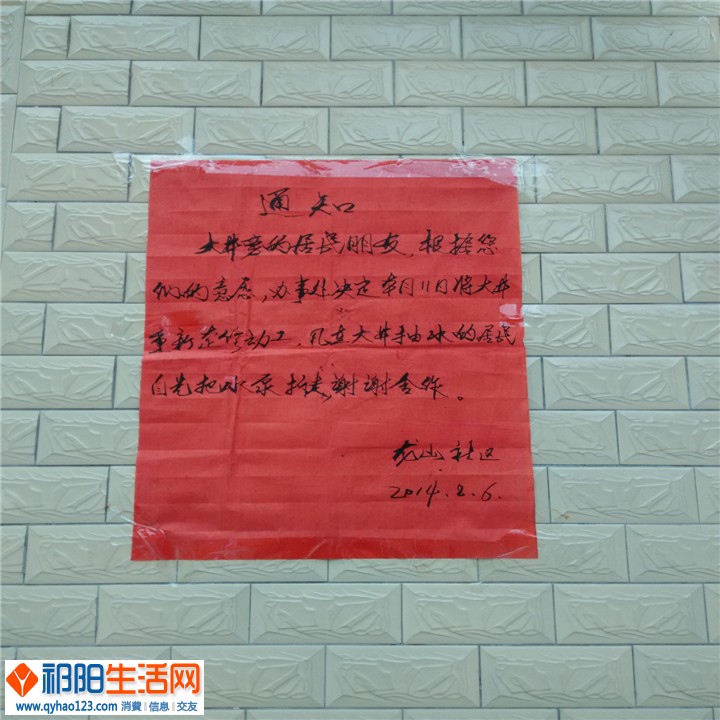 通知
大井旁的居民朋友,根据您
们的意愿,办事处决定本月11日将大井
重新左修动工,凡在大井抽水的居民
自先把水泵拆走,谢谢合作。
龙山社区
2014.2.6.
祁阳生活网
www.qyhao123.com 消費|信息|交友